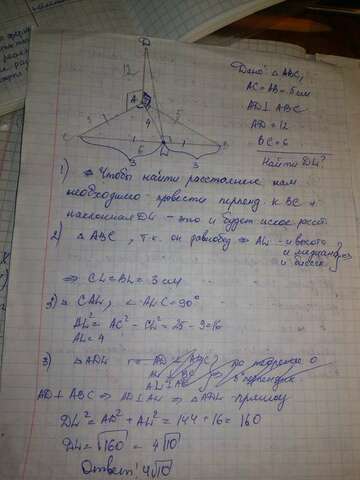 D
12
A
5
4
C
L
B
6
3
3
Дано: △ABC,
AC=AB=5см
AD⊥ABC
AD=12
BC=6
Найти DL?
1) Чтобы найти расстояние нам
необходимо провести перпенд. к BC и
наклонная DL - это и будет искос расст.
2) △ABC, т.к. он равнобед ⇒ AL - и высота
и медиана
и биссек
⇒ CL=BL=3см
3) △CAL, ∠ALC=90°
AL²=AC²-CL²=25-9=16
AL=4
3) △ADL
AD⊥ABC ⇒ AD⊥AL ⇒ △ADL-прямоу
DL²=AD²+AL²=144+16=160
DL=√160=4√10
Ответ: 4√10